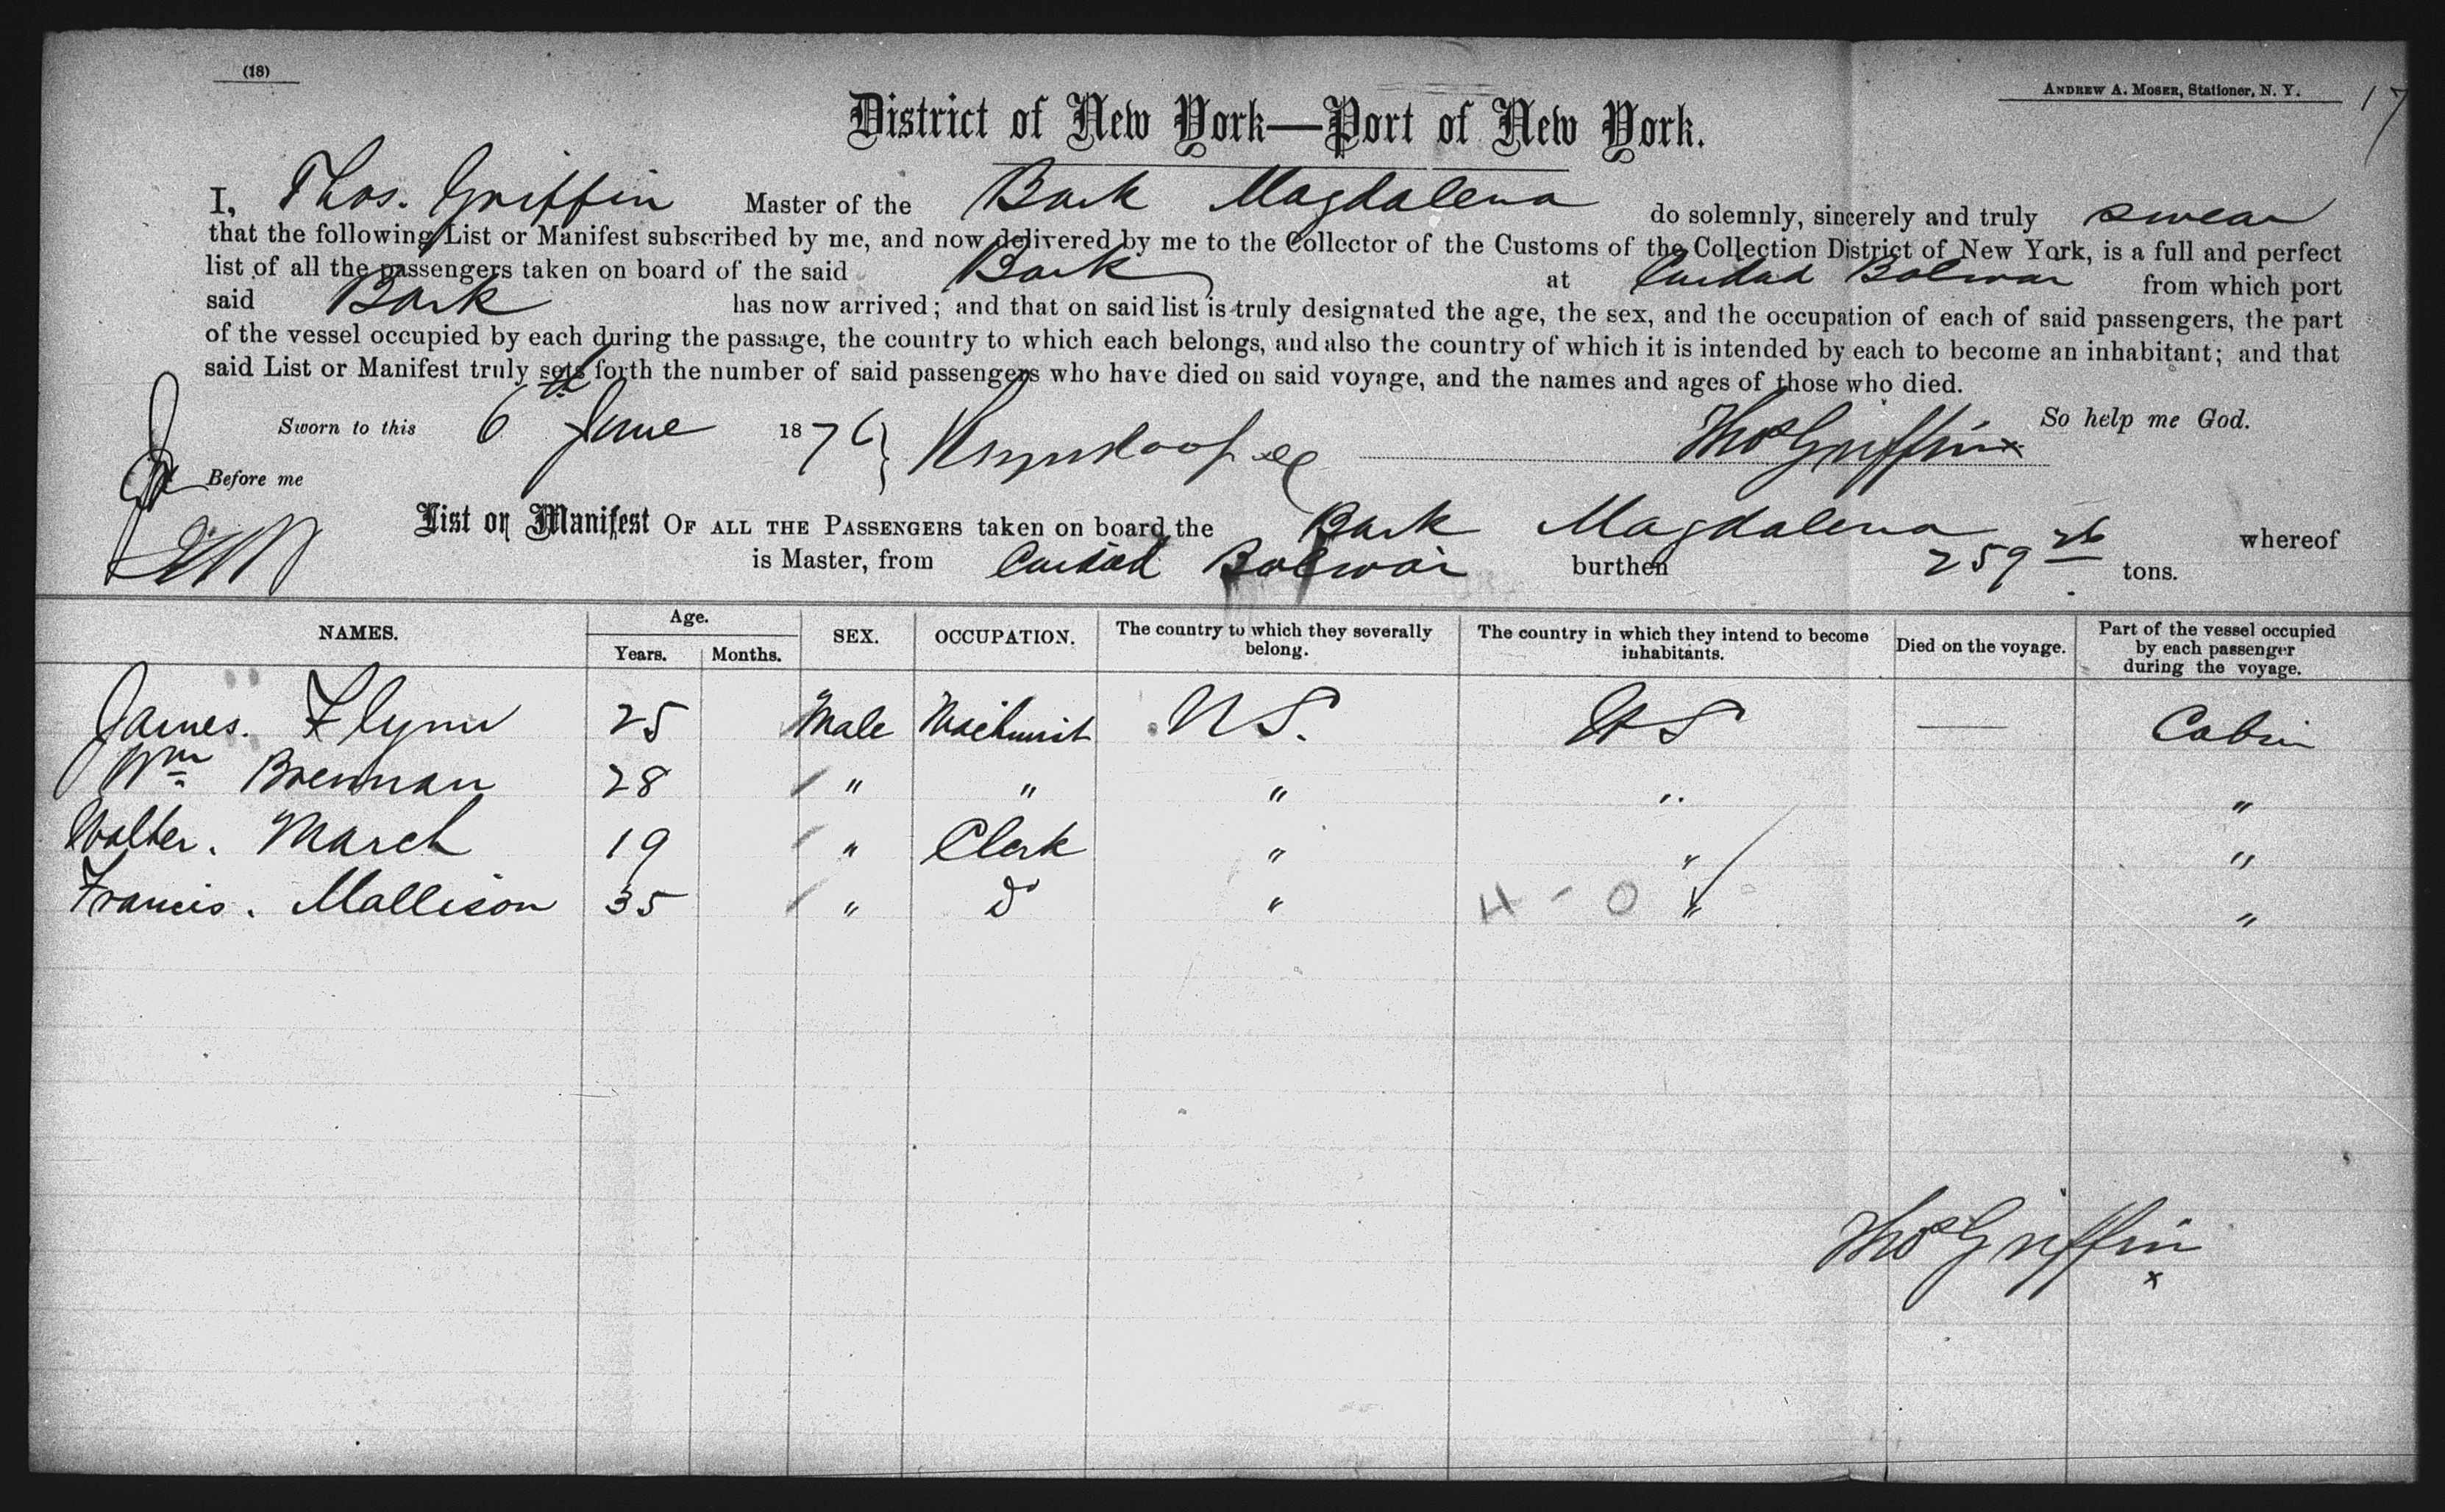 (18)
ANDREW A. MOSER, Stationer, N. Y.
17
District of New York—Port of New York.
I, Thos. Griffin Master of the Bark Magdalena do solemnly, sincerely and truly swear
that the following List or Manifest subscribed by me, and now delivered by me to the Collector of the Customs of the Collection District of New York, is a full and perfect
list of all the passengers taken on board of the said Bark at Cuidad Bolivar from which port
said Bark has now arrived; and that on said list is truly designated the age, the sex, and the occupation of each of said passengers, the part
of the vessel occupied by each during the passage, the country to which each belongs, and also the country of which it is intended by each to become an inhabitant; and that
said List or Manifest truly sets forth the number of said passengers who have died on said voyage, and the names and ages of those who died.
So help me God.
Sworn to this 6th June 1876 } Thos Griffin x
Before me
List or Manifest OF ALL THE PASSENGERS taken on board the Bark Magdalena whereof
is Master, from Cuidad Bolivar burthen 259 26 tons.
NAMES. Age. Years. Months. SEX. OCCUPATION. The country to which they severally belong. The country in which they intend to become inhabitants. Died on the voyage. Part of the vessel occupied by each passenger during the voyage.
James. Flynn 25 Male Machinist U S. U S — Cabin
Wm Brennan 28 " " " " "
Walter. March 19 " Clerk " " "
Francis. Mallison 35 " Do " " "
4 - 0
Thos Griffin
x